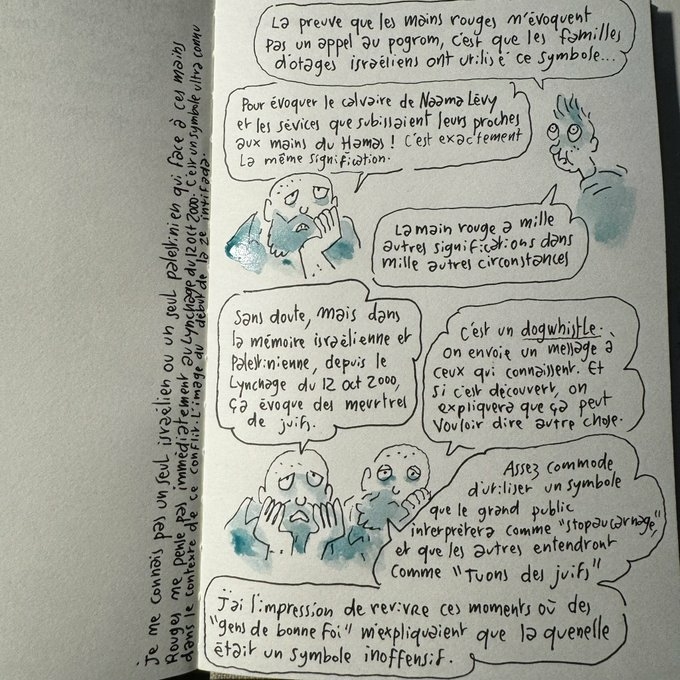 La preuve que les mains rouges n'évoquent
pas un appel au pogrom, c'est que les familles
d'otages israéliens ont utilisé ce symbole...
Pour évoquer le calvaire de Naama Lévy
et les sévices que subissaient leurs proches
aux mains du Hamas ! C'est exactement
la même signification.
La main rouge a mille
autres significations dans
mille autres circonstances
Sans doute, mais dans
la mémoire israélienne et
Palestinienne, depuis le
Lynchage du 12 oct 2000,
ça évoque des meurtres
de juifs.
C'est un dogwhistle.
On envoie un message à
ceux qui connaissent. Et
si c'est découvert, on
expliquera que ça peut
vouloir dire autre chose.
Assez commode
d'utiliser un symbole
que le grand public
interprètera comme "stop au carnage",
et que les autres entendront
comme "Tuons des juifs"
J'ai l'impression de revivre ces moments où des
"gens de bonne foi" m'expliquaient que la quenelle
était un symbole inoffensif.
Je me connais pas un seul israélien ou un seul palestinien qui face à ces mains
Rouges me pense pas immédiatement au Lynchage du 12 oct 2000. C'est un symbole ultra connu
dans le contexte de ce conflit. L'image du début de la 2e intifada.